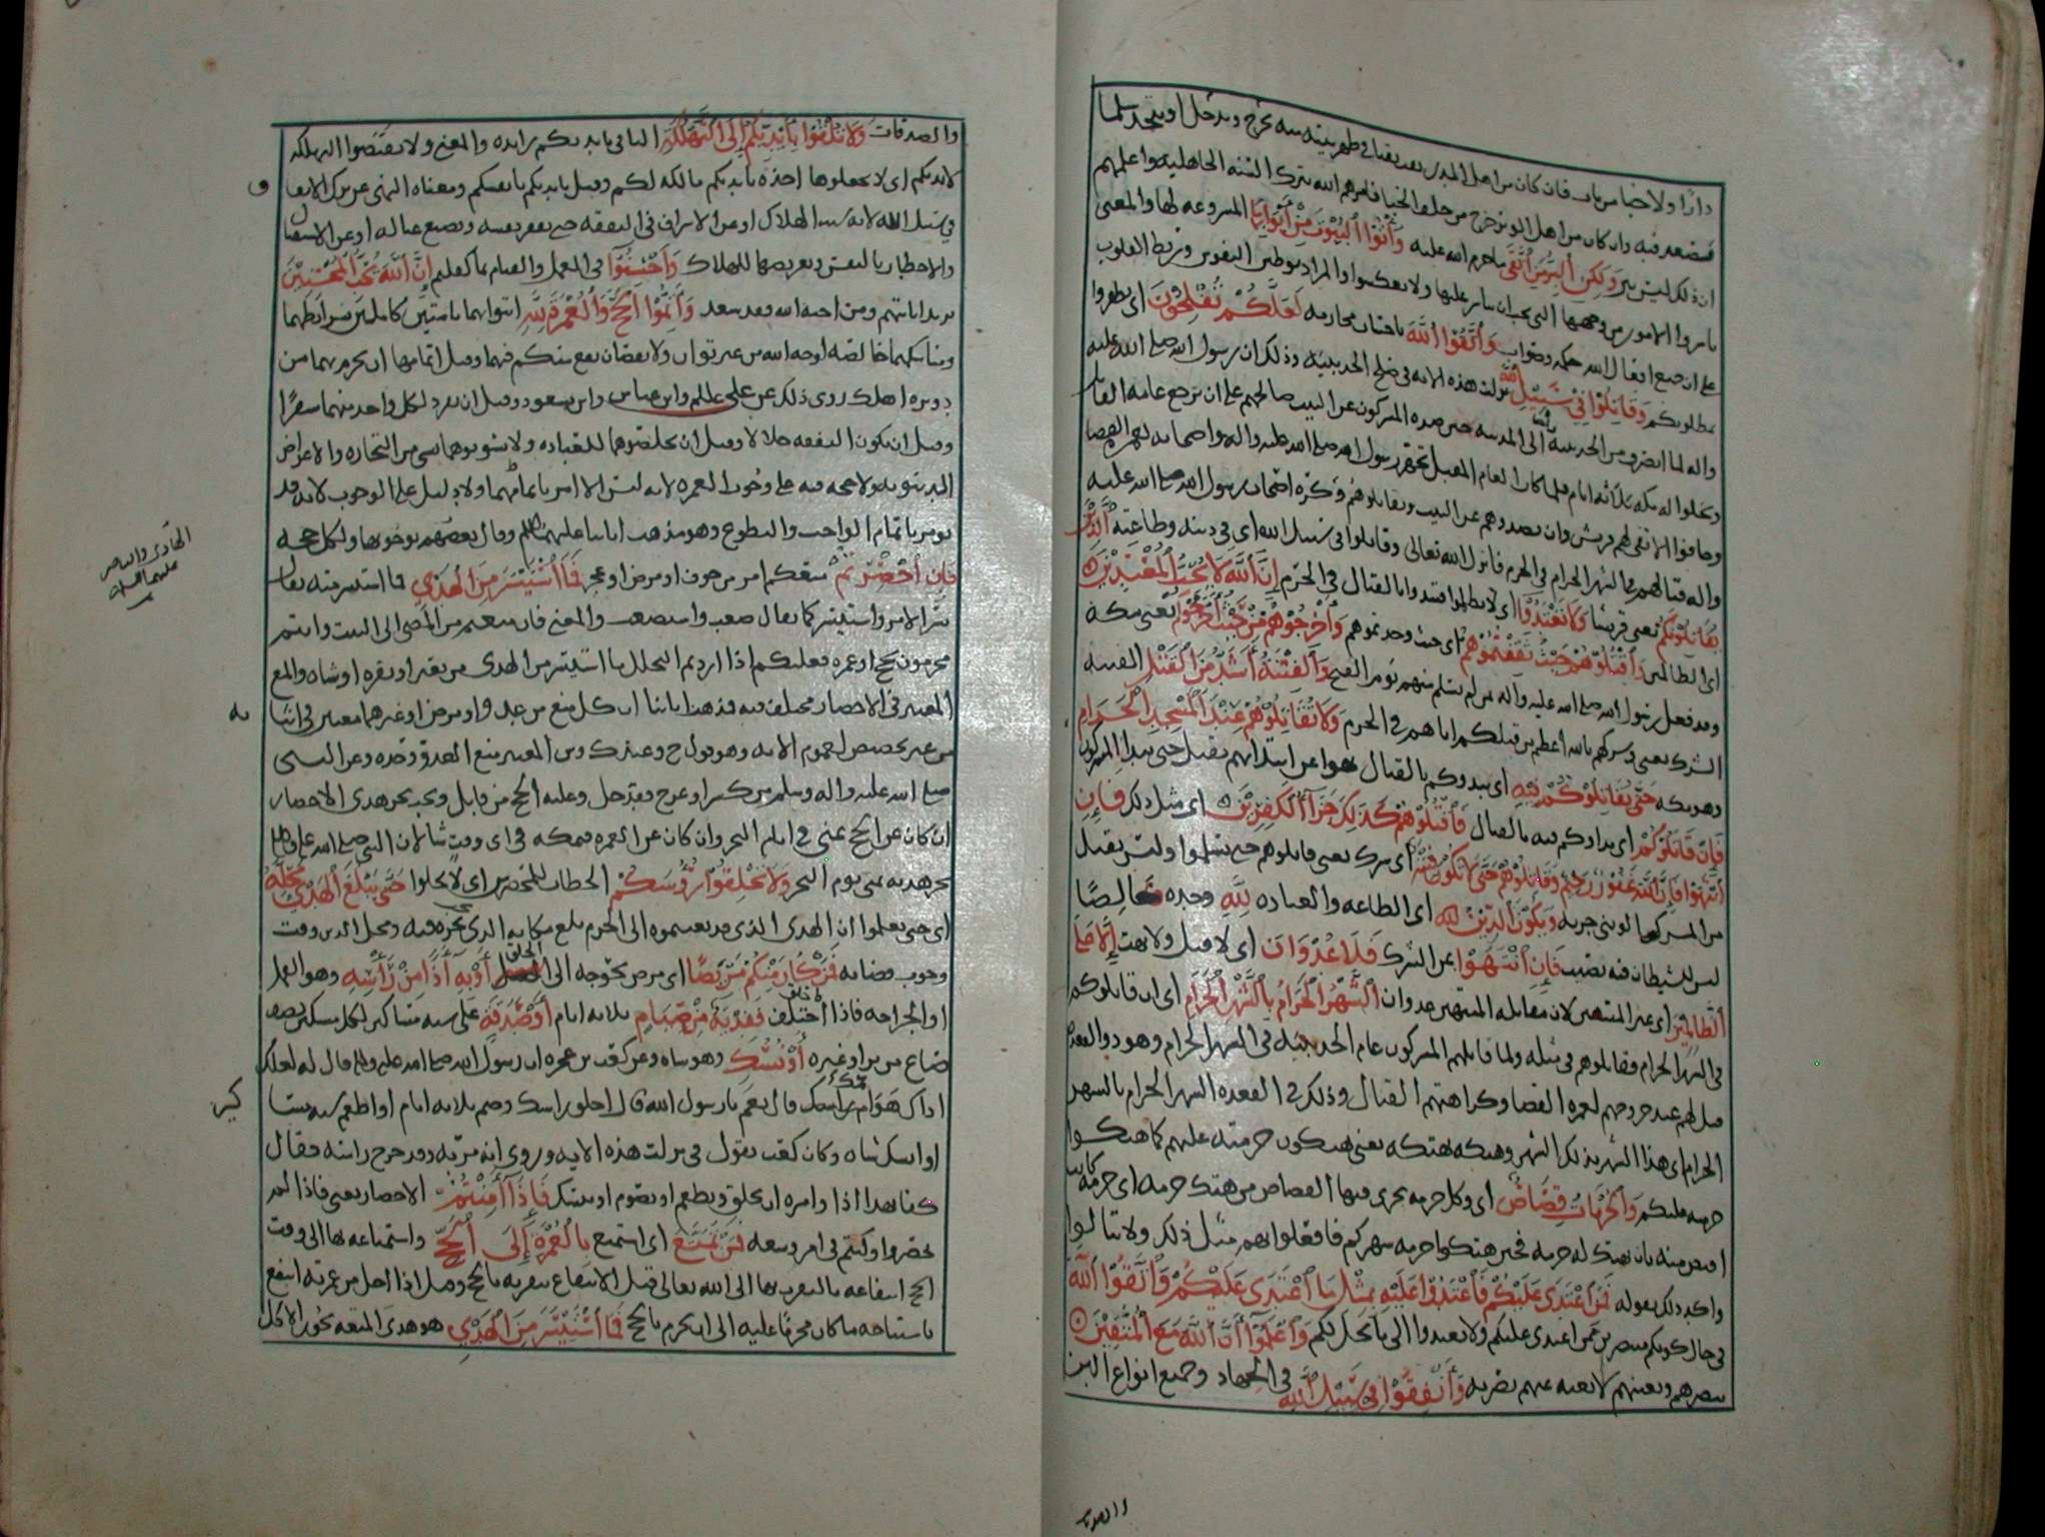 دارًا ولا خباء من باب فان كان من اهل المدر نقب نقبا في ظهر بيته منه يخرج ويدخل او يتخذ سلما
فيصعد فيه وان كان من اهل الوبر خرج من خلف الخبا فامرهم الله بترك السنة الجاهلية واعلمهم
ان ذلك ليس ببر وَلَكِن الْبِرَّ مَنِ اتَّقَى ما حرم الله عليه وَأْتُوا الْبُيُوتَ مِنْ أَبْوَابِهَا المشروعه لها والمعنى
باشروا الامور من وجهها التي يجب ان يباشر عليها ولا تعكسوا والمراد توطين النفوس وربط القلوب
على ان جميع افعال الله حكمه وصواب وَاتَّقُوا اللَّهَ باجتناب محارمه لَعَلَّكُمْ تُفْلِحُونَ اي تظفروا
بمطلوبكم وَقَاتِلُوا فِي سَبِيلِ اللَّهِ نزلت هذه الايه في صلح الحديبية وذلك ان رسول الله صلى الله عليه
واله لما انصرف من الحديبية الى المدينه حين صده المشركون عن البيت صالحهم على ان يرجع عامه القابل
ويخلوا له مكه ثلاثه ايام فلما كان العام المقبل تجهز رسول الله صلى الله عليه واله واصحابه لعمره القضا
وخافوا الا تفي لهم قريش وان يصدوهم عن البيت ويقاتلوهم وكره اصحاب رسول الله صلى الله عليه
واله قتالهم في الشهر الحرام في الحرم فانزل الله تعالى وقاتلوا في سبيل الله اي في دينه وطاعته الَّذِينَ
يُقَاتِلُونَكُمْ يعني قريشا وَلَا تَعْتَدُوا اي لا تظلموا فتبدوا بالقتال في الحرم إِنَّ اللَّهَ لَا يُحِبُّ الْمُعْتَدِينَ
اي الظالمين وَاقْتُلُوهُمْ حَيْثُ ثَقِفْتُمُوهُمْ اي حيث وجدتموهم وَأَخْرِجُوهُمْ مِنْ حَيْثُ أَخْرَجُوكُمْ يعني مكه
وقد فعل رسول الله صلى الله عليه وآله من لم يسلم منهم يوم الفتح وَالْفِتْنَةُ أَشَدُّ مِنَ الْقَتْلِ الفتنه
الشرك يعني وشركهم بالله أعظم من قتلكم اياهم في الحرم وَلَا تُقَاتِلُوهُمْ عِنْدَ الْمَسْجِدِ الْحَرَامِ
وهو مكه حَتَّى يُقَاتِلُوكُمْ فِيهِ اي يبدوكم بالقتال نهوا عن ابتدائهم بقتل حتى يبدا المشركون
فَإِنْ قَاتَلُوكُمْ اي بداوكم فيه بالقتال فَاقْتُلُوهُمْ كَذَلِكَ جَزَاءُ الْكَافِرِينَ اي مثل ذلك فَإِنِ
انْتَهَوْا فَإِنَّ اللَّهَ غَفُورٌ رَحِيمٌ وَقَاتِلُوهُمْ حَتَّى لَا تَكُونَ فِتْنَةٌ أي شرك يعني قاتلوهم حتى يسلموا وليس يقبل
من المشرك الوثني جزيه وَيَكُونَ الدِّينُ لِلَّهِ اي الطاعه والعباده لِلَّهِ وحده خالصًا
ليس للشيطان فيه نصيب فَإِنِ انْتَهَوْا عن الشرك فَلَا عُدْوَانَ اي لا قتل ولا نهب إِلَّا عَلَى
الظَّالِمِينَ اي غير المنتهين لان مقاتله المنتهين عدوان الشَّهْرُ الْحَرَامُ بِالشَّهْرِ الْحَرَامِ اي ان قاتلوكم
في الشهر الحرام فقاتلوهم في مثله ولما قاتلهم المشركون عام الحديبيه في الشهر الحرام وهو ذو القعده
قيل لهم عند خروجهم لعمره القضا وكراهتهم القتال وذلك في القعده الشهر الحرام بالشهر
الحرام اي هذا الشهر بذلك الشهر وهتكه بهتكه يعني تهتكون حرمته عليهم كما هتكوا
حرمته عليكم وَالْحُرُمَاتُ قِصَاصٌ أي وكل حرمه يجري فيها القصاص من هتك حرمه اي حرمه كانت
اقتص منه بان يهتك له حرمه فحين هتكوا حرمه شهركم فافعلوا بهم مثل ذلك ولا تبالوا
واكد ذلك بقوله فَمَنِ اعْتَدَى عَلَيْكُمْ فَاعْتَدُوا عَلَيْهِ بِمِثْلِ مَا اعْتَدَى عَلَيْكُمْ وَاتَّقُوا اللَّهَ
في حال كونكم منتصرين ممن اعتدى عليكم ولا تعتدوا الى ما لا يحل لكم وَاعْلَمُوا أَنَّ اللَّهَ مَعَ الْمُتَّقِينَ
ينصرهم ويعينهم وَأَنْفِقُوا فِي سَبِيلِ اللَّهِ في الجهاد وجميع انواع البر
والصدقات
والصدقات وَلَا تُلْقُوا بِأَيْدِيكُمْ إِلَى التَّهْلُكَةِ الباء في بايديكم زايده والمعنى ولا تقبضوا التهلكه
لايديكم اي لا تجعلوها اخذه بايديكم مالكه لكم وقيل بايديكم بانفسكم ومعناه النهي عن ترك الانفاق
في سبيل الله لانه سبب الهلاك او عن الاسراف في النفقه حتى يفقر نفسه ويضيع عياله او عن الاستقتال
والاخطار بالنفس وتعريضها للهلاك وَأَحْسِنُوا في العمل والقيام بما كلفكم إِنَّ اللَّهَ يُحِبُّ الْمُحْسِنِينَ
يريد اثابتهم ومن احبه الله فقد سعد وَأَتِمُّوا الْحَجَّ وَالْعُمْرَةَ لِلَّهِ ائتوا بهما تامتين كاملتين بشرائطهما
ومناسكهما خالصه لوجه الله من غير توان ولا نقصان يقع منكم فيهما وقيل اتمامهما ان يحرم بهما من
دويره اهلك روى ذلك عن علي عليلم وابن عباس وابن مسعود وقيل ان يفرد لكل واحد منهما سفرًا
وقيل ان يكون النفقه حلالا وقيل ان يخلصوهما للعباده ولا يشوبوهما بشي من التجاره والاغراض
الدنيويه ولا حجه فيه على وجوب العمره لانه ليس الا امر باتمامهما ولا دليل على الوجوب لانه قد
يومر باتمام الواجب والتطوع وهو مذهب ابائنا عليهم السلم وقال بعضهم بوجوبها ولكل حجه
فَإِنْ أُحْصِرْتُمْ منعكم امر من خوف او مرض او عجز فَمَا اسْتَيْسَرَ مِنَ الْهَدْيِ فما استيسر منه يقال
يسر الامر واستيسر كما يقال صعب واستصعب والمعنى فان منعتم من المضي الى البيت وانتم
محرمون بحج او عمره فعليكم اذا اردتم التحلل ما استيسر من الهدي من بعير او بقره او شاه والمنع
المعتبر في الاحصار مختلف فيه فمذهب ابائنا ان كل منع من عدو او مرض او غيرهما معتبر في اثباته
من غير تخصيص لعموم الايه وهو قول ح وعند ك وش المعتبر منع العدو وحده وعن النبي
صلى الله عليه واله وسلم من كسر او عرج فقد حل وعليه الحج من قابل ويجب نحر هدي الاحصار
ان كان عن الحج بمنى في ايام النحر وان كان عن العمره فبمكه في اي وقت شا لان النبي صلى الله عليه واله
نحر هديه بمنى يوم النحر وَلَا تَحْلِقُوا رُءُوسَكُمْ الخطاب للمحصرين اي لا تحلوا حَتَّى يَبْلُغَ الْهَدْيُ مَحِلَّهُ
اي حتى تعلموا ان الهدي الذي قد بعثتموه الى الحرم بلغ مكانه الذي يجب نحره فيه ومحل الدين وقت
وجوب قضائه فَمَنْ كَانَ مِنْكُمْ مَرِيضًا اي مرض يحوجه الى الحلق أَوْ بِهِ أَذًى مِنْ رَأْسِهِ وهو القمل
او الجراحه فاذا احتلق فَفِدْيَةٌ مِنْ صِيَامٍ ثلاثه ايام أَوْ صَدَقَةٍ على سته مساكين لكل مسكين نصف
صاع من بر او غيره أَوْ نُسُكٍ وهو شاه وعن كعب بن عجره ان رسول الله صلى الله عليه واله قال له لعلك
اذاك هوام راسك قال نعم يا رسول الله قال احلق راسك وصم ثلاثه ايام او اطعم سته مساكين
او انسك شاه وكان كعب يقول في نزلت هذه الايه وروي انه مر به وقد قرح راسه فقال
كفا بهذا اذا وامره ان يحلق ويطعم او يصوم او ينسك فَإِذَا أَمِنْتُمْ الاحصار يعني فاذا لم
تحصروا وكنتم في امن وسعه فَمَنْ تَمَتَّعَ اي استمتع بِالْعُمْرَةِ إِلَى الْحَجِّ واستمتاعه بها الى وقت
الحج انتفاعه بالتقرب بها الى الله تعالى قبل الانتفاع بتقربه بالحج وقيل اذا احل من عمرته انتفع
باستباحه ما كان محرمًا عليه الى ان يحرم بالحج فَمَا اسْتَيْسَرَ مِنَ الْهَدْيِ هو هدي المتعه يجوز الاكل
الهادي والناصر
عليهما السلام